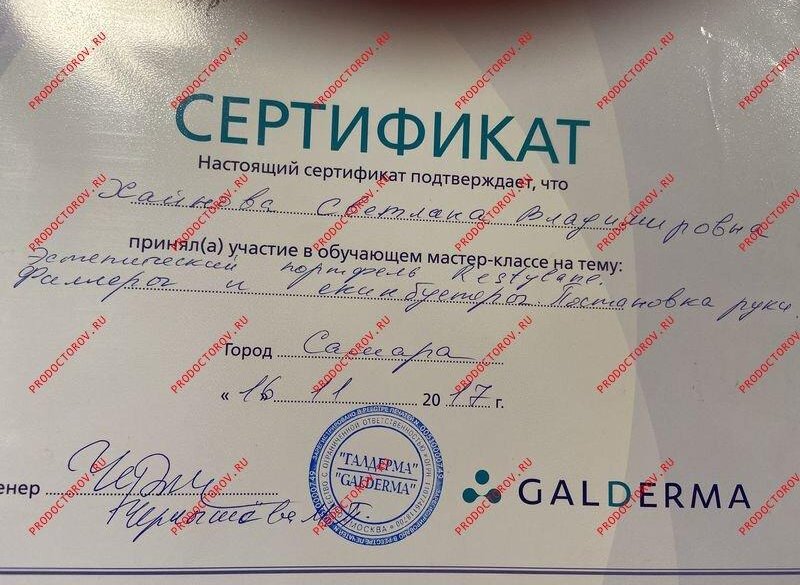 СЕРТИФИКАТ
Настоящий сертификат подтверждает, что
Хаинова Светлана Владимировна
принял(а) участие в обучающем мастер-классе на тему:
Эстетический портфель Restylane.
Филлеры и скинбустеры. Постановка руки.
Город Самара
« 16 11 2017 г.
енер
Чернышова
"ГАЛДЕРМА"
"GALDERMA"
МОСКВА
GALDERMA
PRODOCTOROV.RU